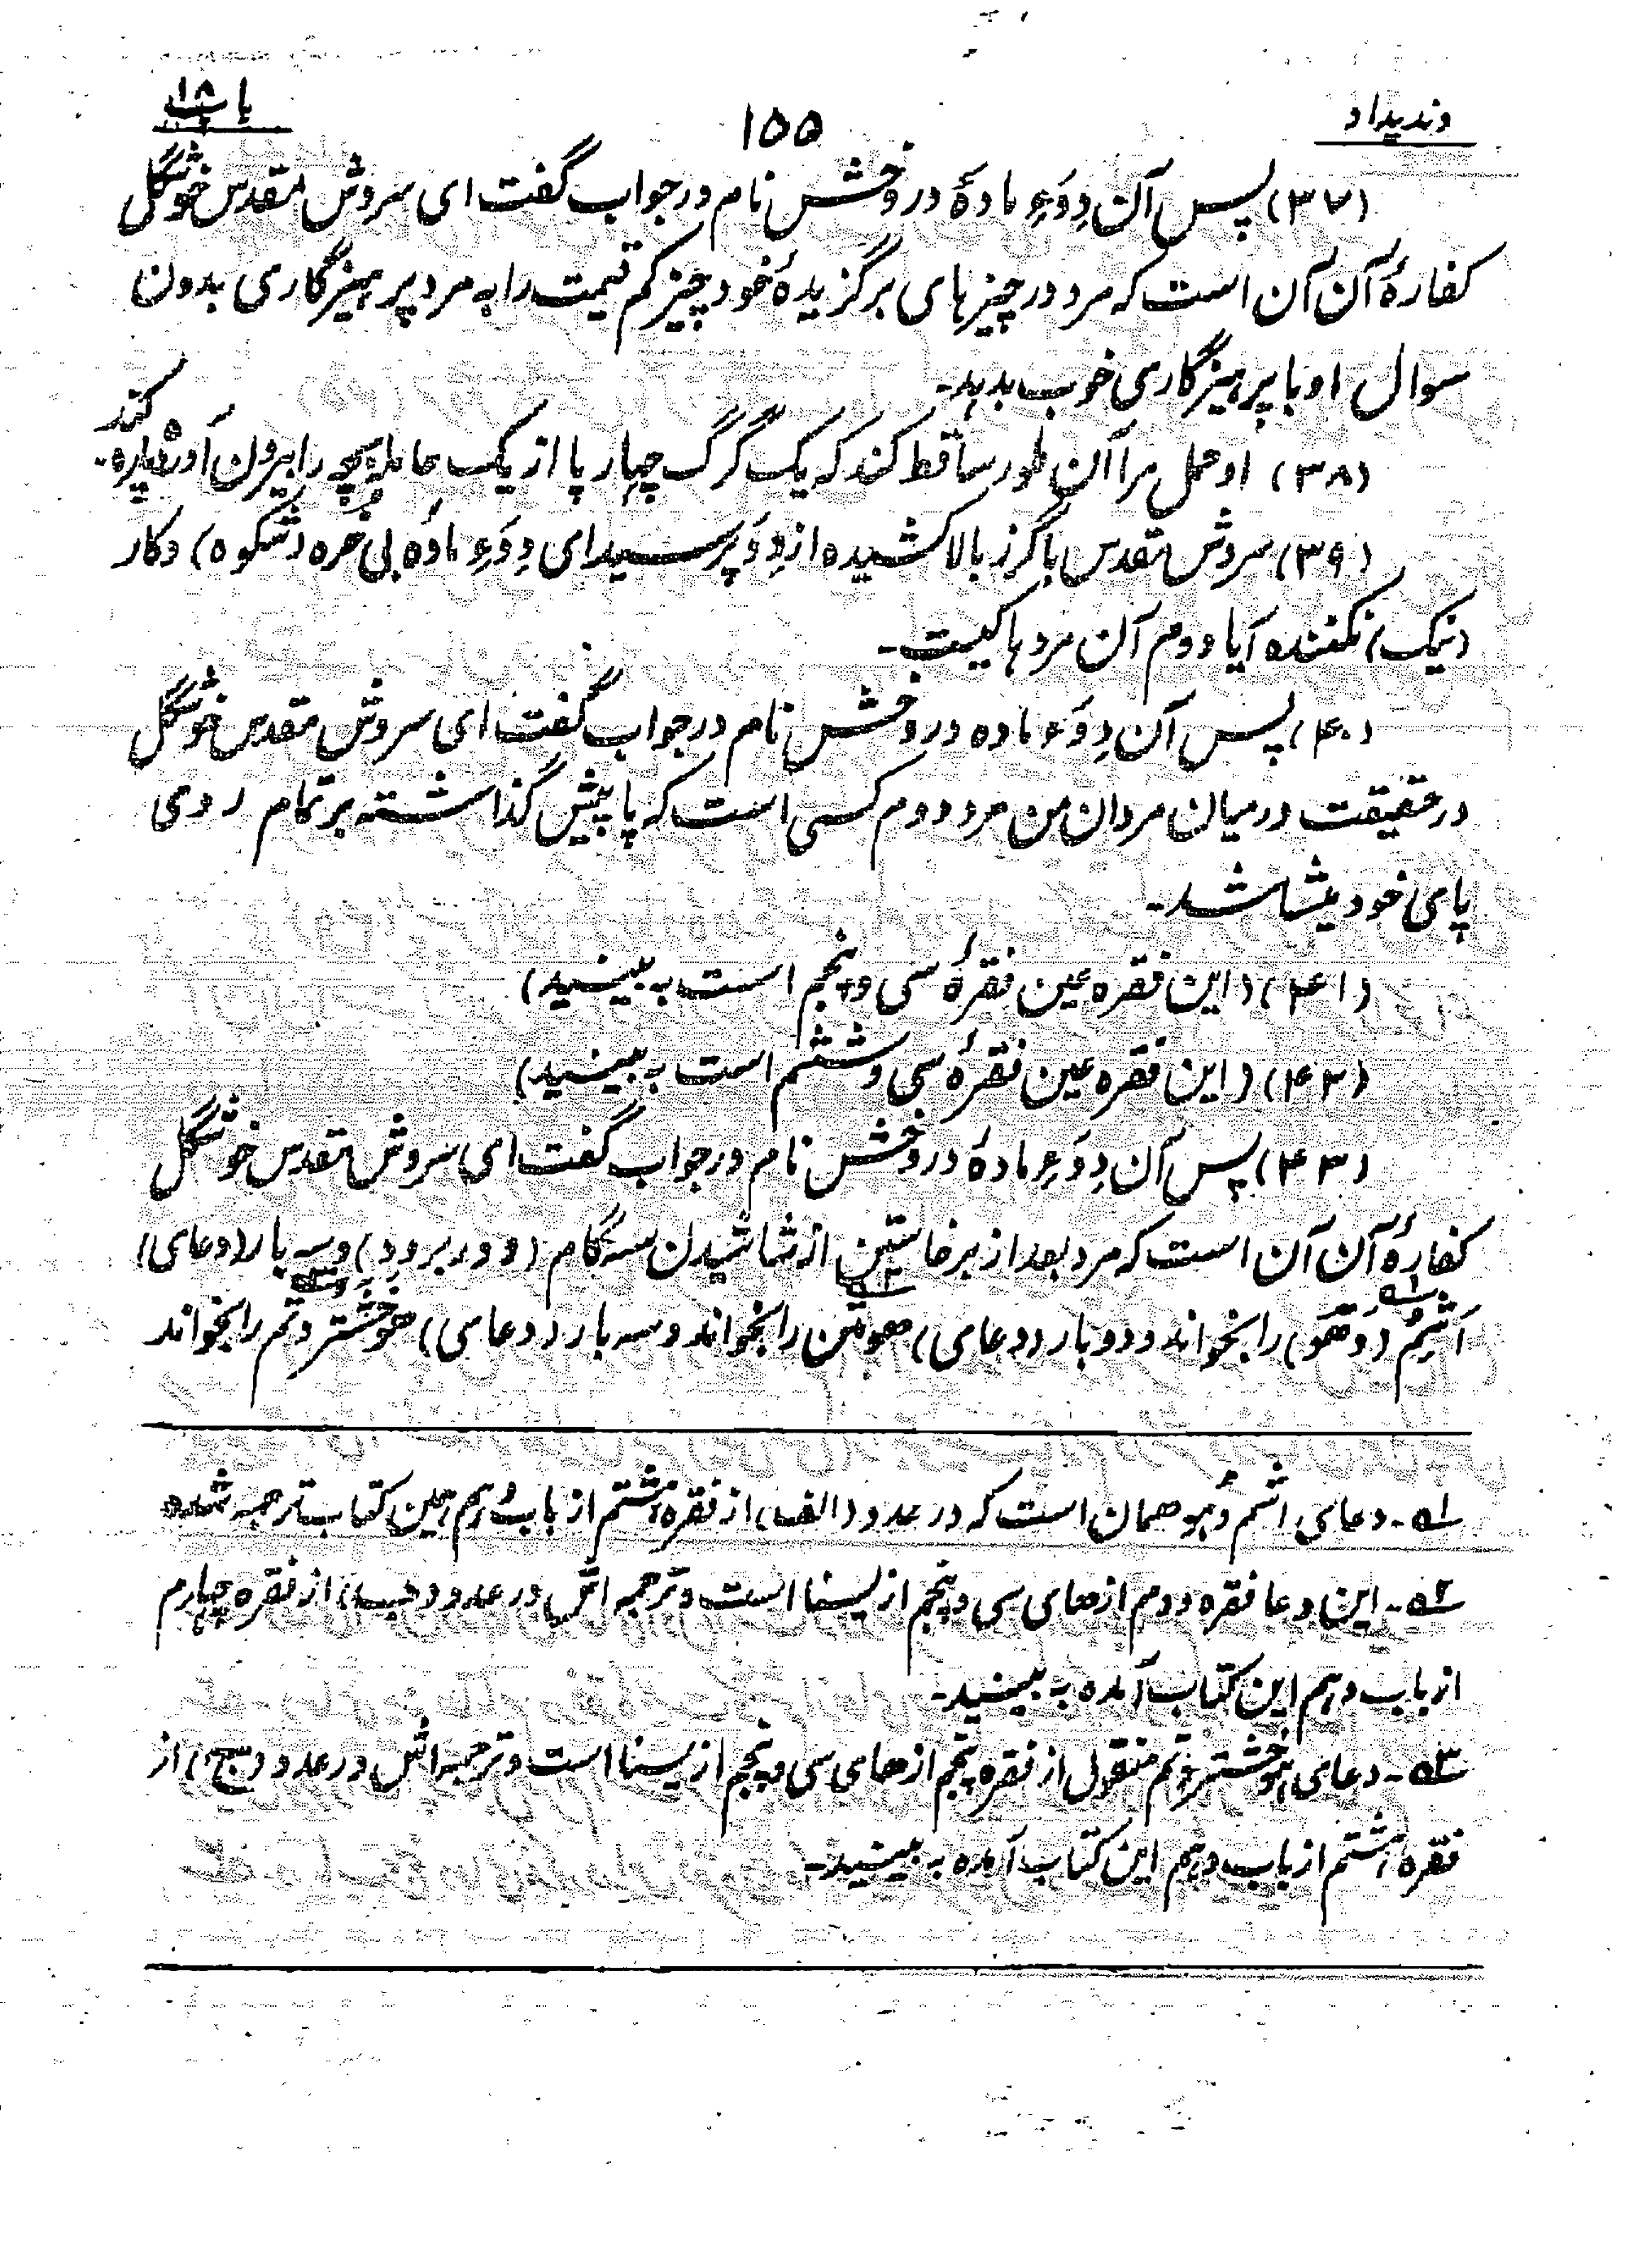 وندیداد
۱۵۵
باب ۱۸
(۳۷) پس آن دِوَءِ مادهٔ دروخش نام در جواب گفت ای سروش مقدس خوشگل
کفارهٔ آن آن است که مرد در چیزهای برگزیدهٔ خود چیز کم قیمت را به مرد پرهیزگاری بدون
سوال او با پرهیزگاری خوب بدهد-
(۳۸) او حمل مرا آن طور ساقط کند که یک گرگ چهار پا از یک حامله بچه را بیرون آورده پاره کند-
(۳۹) سروش مقدس با گرز بالا کشیده از دِوَ پرسید ای دِوَءِ ماده بی خره (شکوه) و کار
(نیک) نکننده آیا دوم آن مردها کیست-
(۴۰) پس آن دِوَءِ ماده دروخش نام در جواب گفت ای سروش مقدس خوشگل
در حقیقت در میان مردان من مرد دوم کسی است که پا پیش گذاشته بر تمام روی
پای خود بشاشد-
(۴۱) (این فقره عین فقرهٔ سی و پنجم است به بینید)
(۴۲) (این فقره عین فقرهٔ سی و ششم است به بینید)
(۴۳) پس آن دِوَءِ مادهٔ دروخش نام در جواب گفت ای سروش مقدس خوشگل
کفارهٔ آن آن است که مرد بعد از برخاستن از شاشیدن سه گام (دور برود) و سه بار (دعای)
اَشِم (وُهو)۵۱ را بخواند و دو بار (دعای) هومتن۵۲ را بخواند و سه بار (دعای) هوخشتروتم۵۳ را بخواند
۵۱- دعای اشم وُهو همان است که در عدد (الف) از فقره هشتم از باب دهم همین کتاب ترجمه شده
۵۲- این دعا فقره دوم از های سی و پنجم از یسنا است و ترجمه اش در عدد (ب) از فقره چهارم
از باب دهم این کتاب آمده به بینید-
۵۳- دعای هوخشتروتم منقول از فقره پنجم از های سی و پنجم از یسنا است و ترجمه اش در عدد (ج) از
فقره هشتم از باب دهم این کتاب آمده به بینید-